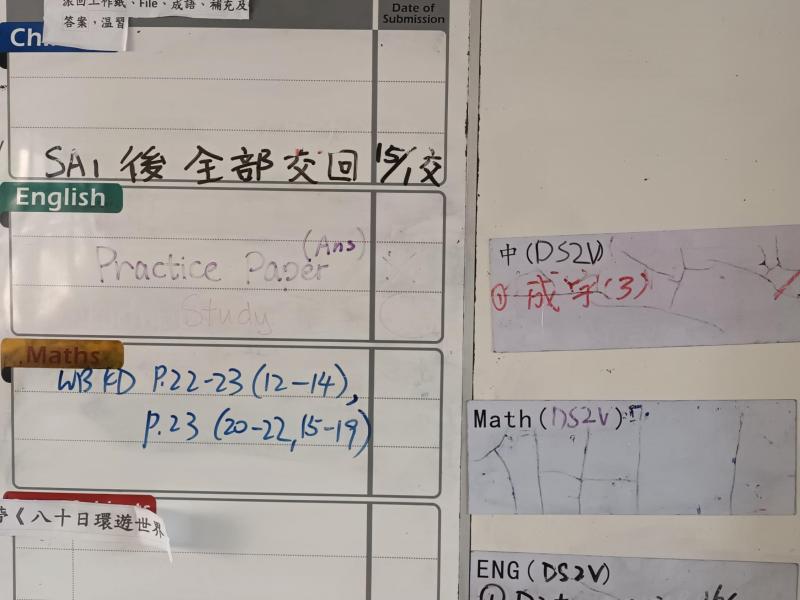 派回工作紙、File、成語、補充及
答案，溫習
Date of
Submission
SA1 後 全部交回 15/1交
English
(Ans)
Practice Paper
Study
Maths
WB KD P.22-23 (12-14),
P.23 (20-22, 15-19)
《八十日環遊世界
中(DS2V)
① 成字(3)
Math(DS2V)
ENG(DS2V)